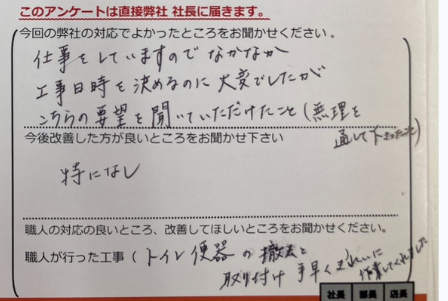 このアンケートは直接弊社 社長に届きます。
今回の弊社の対応でよかったところをお聞かせください。
仕事をしていますので なかなか
工事日時を決めるのに大変でしたが
こちらの要望を聞いていただけたこと(無理を
通して下さったこと)
今後改善した方が良いところをお聞かせ下さい
特になし
職人の対応の良いところ、改善してほしいところをお聞かせください。
職人が行った工事(トイレ便器の撤去と
取り付け 手早くきれいに
作業してくれました
社長 部長 店長